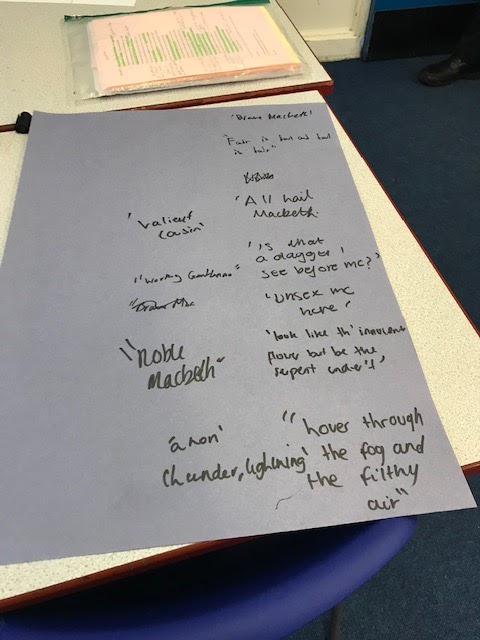 'Brave Macbeth'
"Fair is foul and foul
is fair"
'All hail
Macbeth.
'is that
a dagger I
see before me?'
'unsex me
here'
'look like th' innocent
flower but be the
serpent under't'
"hover through
the fog and
the filthy
air"
'valient
cousin'
"worthy
"noble
Macbeth"
'anon'
thunder, lightning'